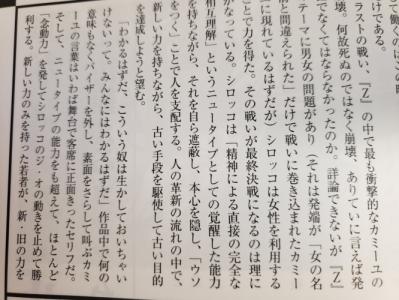 けである。
ラストの戦い、『Z』の中で最も衝撃的なカミーユの
壊。何故死ぬのではなく崩壊、ありていに言えば発
でなくてはならなかったのか。詳論できないが『Z』
テーマに男女の問題があり（それは発端が「女の名
前と間違えられた」だけで戦いに巻き込まれたカミー
に現れているはずだが）シロッコは女性を利用する
ことで力を得た。その戦いが最終決戦になるのは理に
かなっている。シロッコは「精神による直接の完全な
相互理解」というニュータイプとしての覚醒した能力
を持ちながら、それを自ら遮蔽し、本心を隠し、「ウソ
をつく」ことで人を支配する。人の革新の流れの中で、
新しい力を持ちながら、古い手段を駆使して古い目的
を達成しようと望む。
「わかるはずだ、こういう奴は生かしておいちゃい
けないって。みんなにはわかるはずだ」作品中で何の
意味もなくバイザーを外し、素面をさらして叫ぶカミ
ーユの言葉はいわば舞台で客席に正面きったセリフだ。
そして、ニュータイプの能力をも超えて、ほとんど
「念動力」を発してシロッコのジ・オの動きを止めて勝
利する。新しい力のみを持った若者が、新・旧の力を